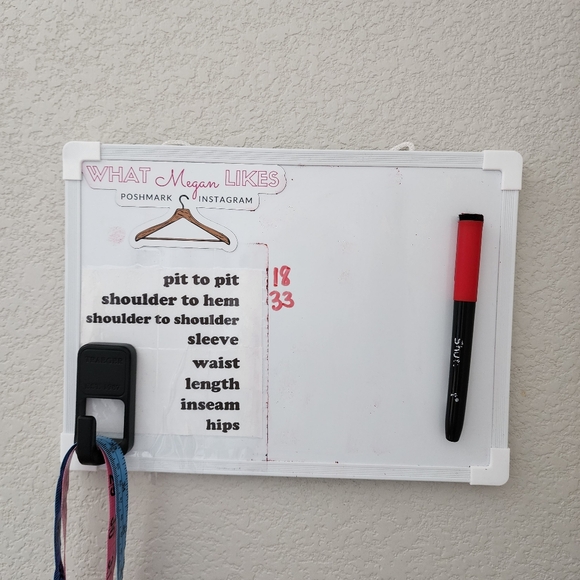 WHAT Megan LIKES
POSHMARK INSTAGRAM
pit to pit 18
shoulder to hem 33
shoulder to shoulder
sleeve
waist
length
inseam
hips